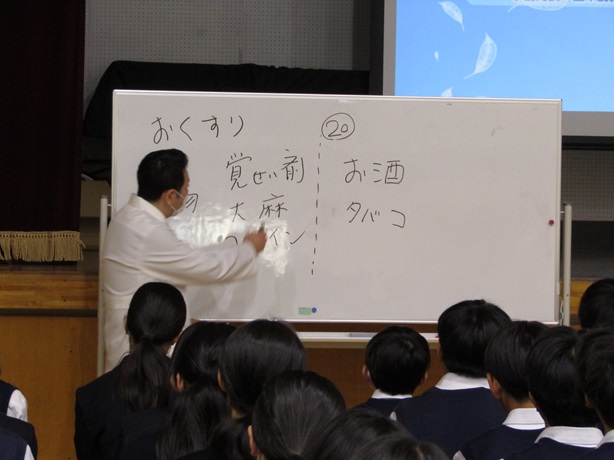 おくすり
⑳
覚せい剤
お酒
大麻
タバコ
イン